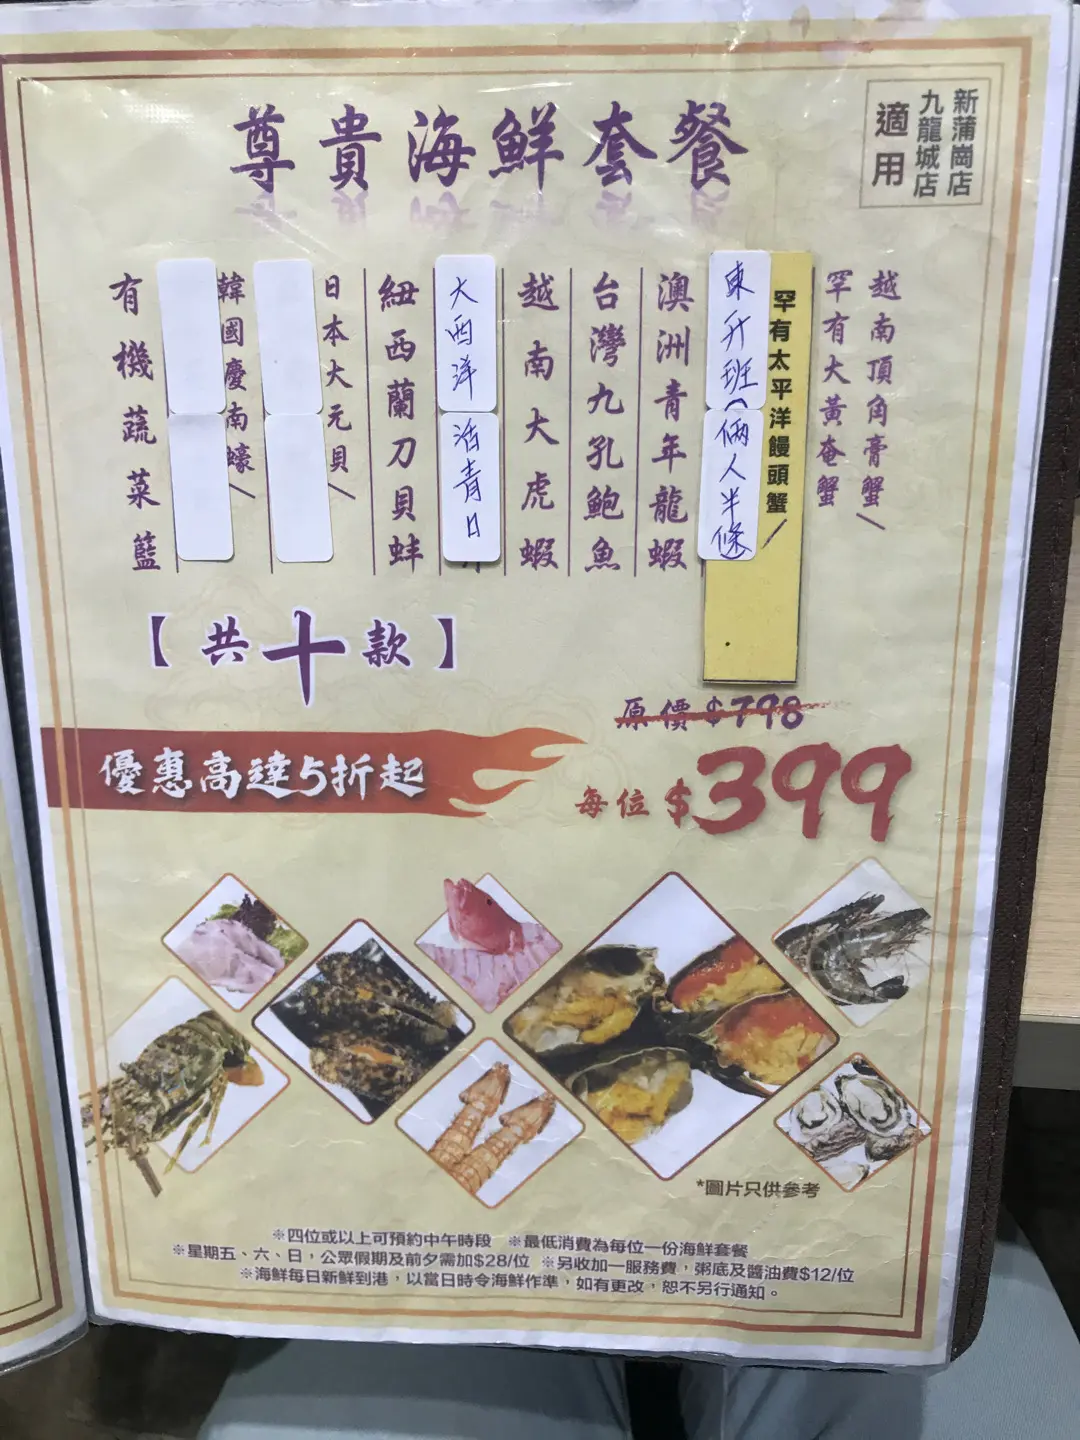 尊貴海鮮套餐
新蒲崗店
九龍城店
適用
越南頂角膏蟹/
罕有大黃奄蟹
罕有太平洋饅頭蟹/
東升班(倆人半條
澳洲青年龍蝦
台灣九孔鮑魚
越南大虎蝦
大西洋活青口
紐西蘭刀貝蚌
日本大元貝/
韓國慶南蠔/
有機蔬菜籃
【共十款】
原價$798
優惠高達5折起
每位$399
*圖片只供參考
※四位或以上可預約中午時段 ※最低消費為每位一份海鮮套餐
※星期五、六、日，公眾假期及前夕需加$28/位 ※另收加一服務費，粥底及醬油費$12/位
※海鮮每日新鮮到港，以當日時令海鮮作準，如有更改，恕不另行通知。